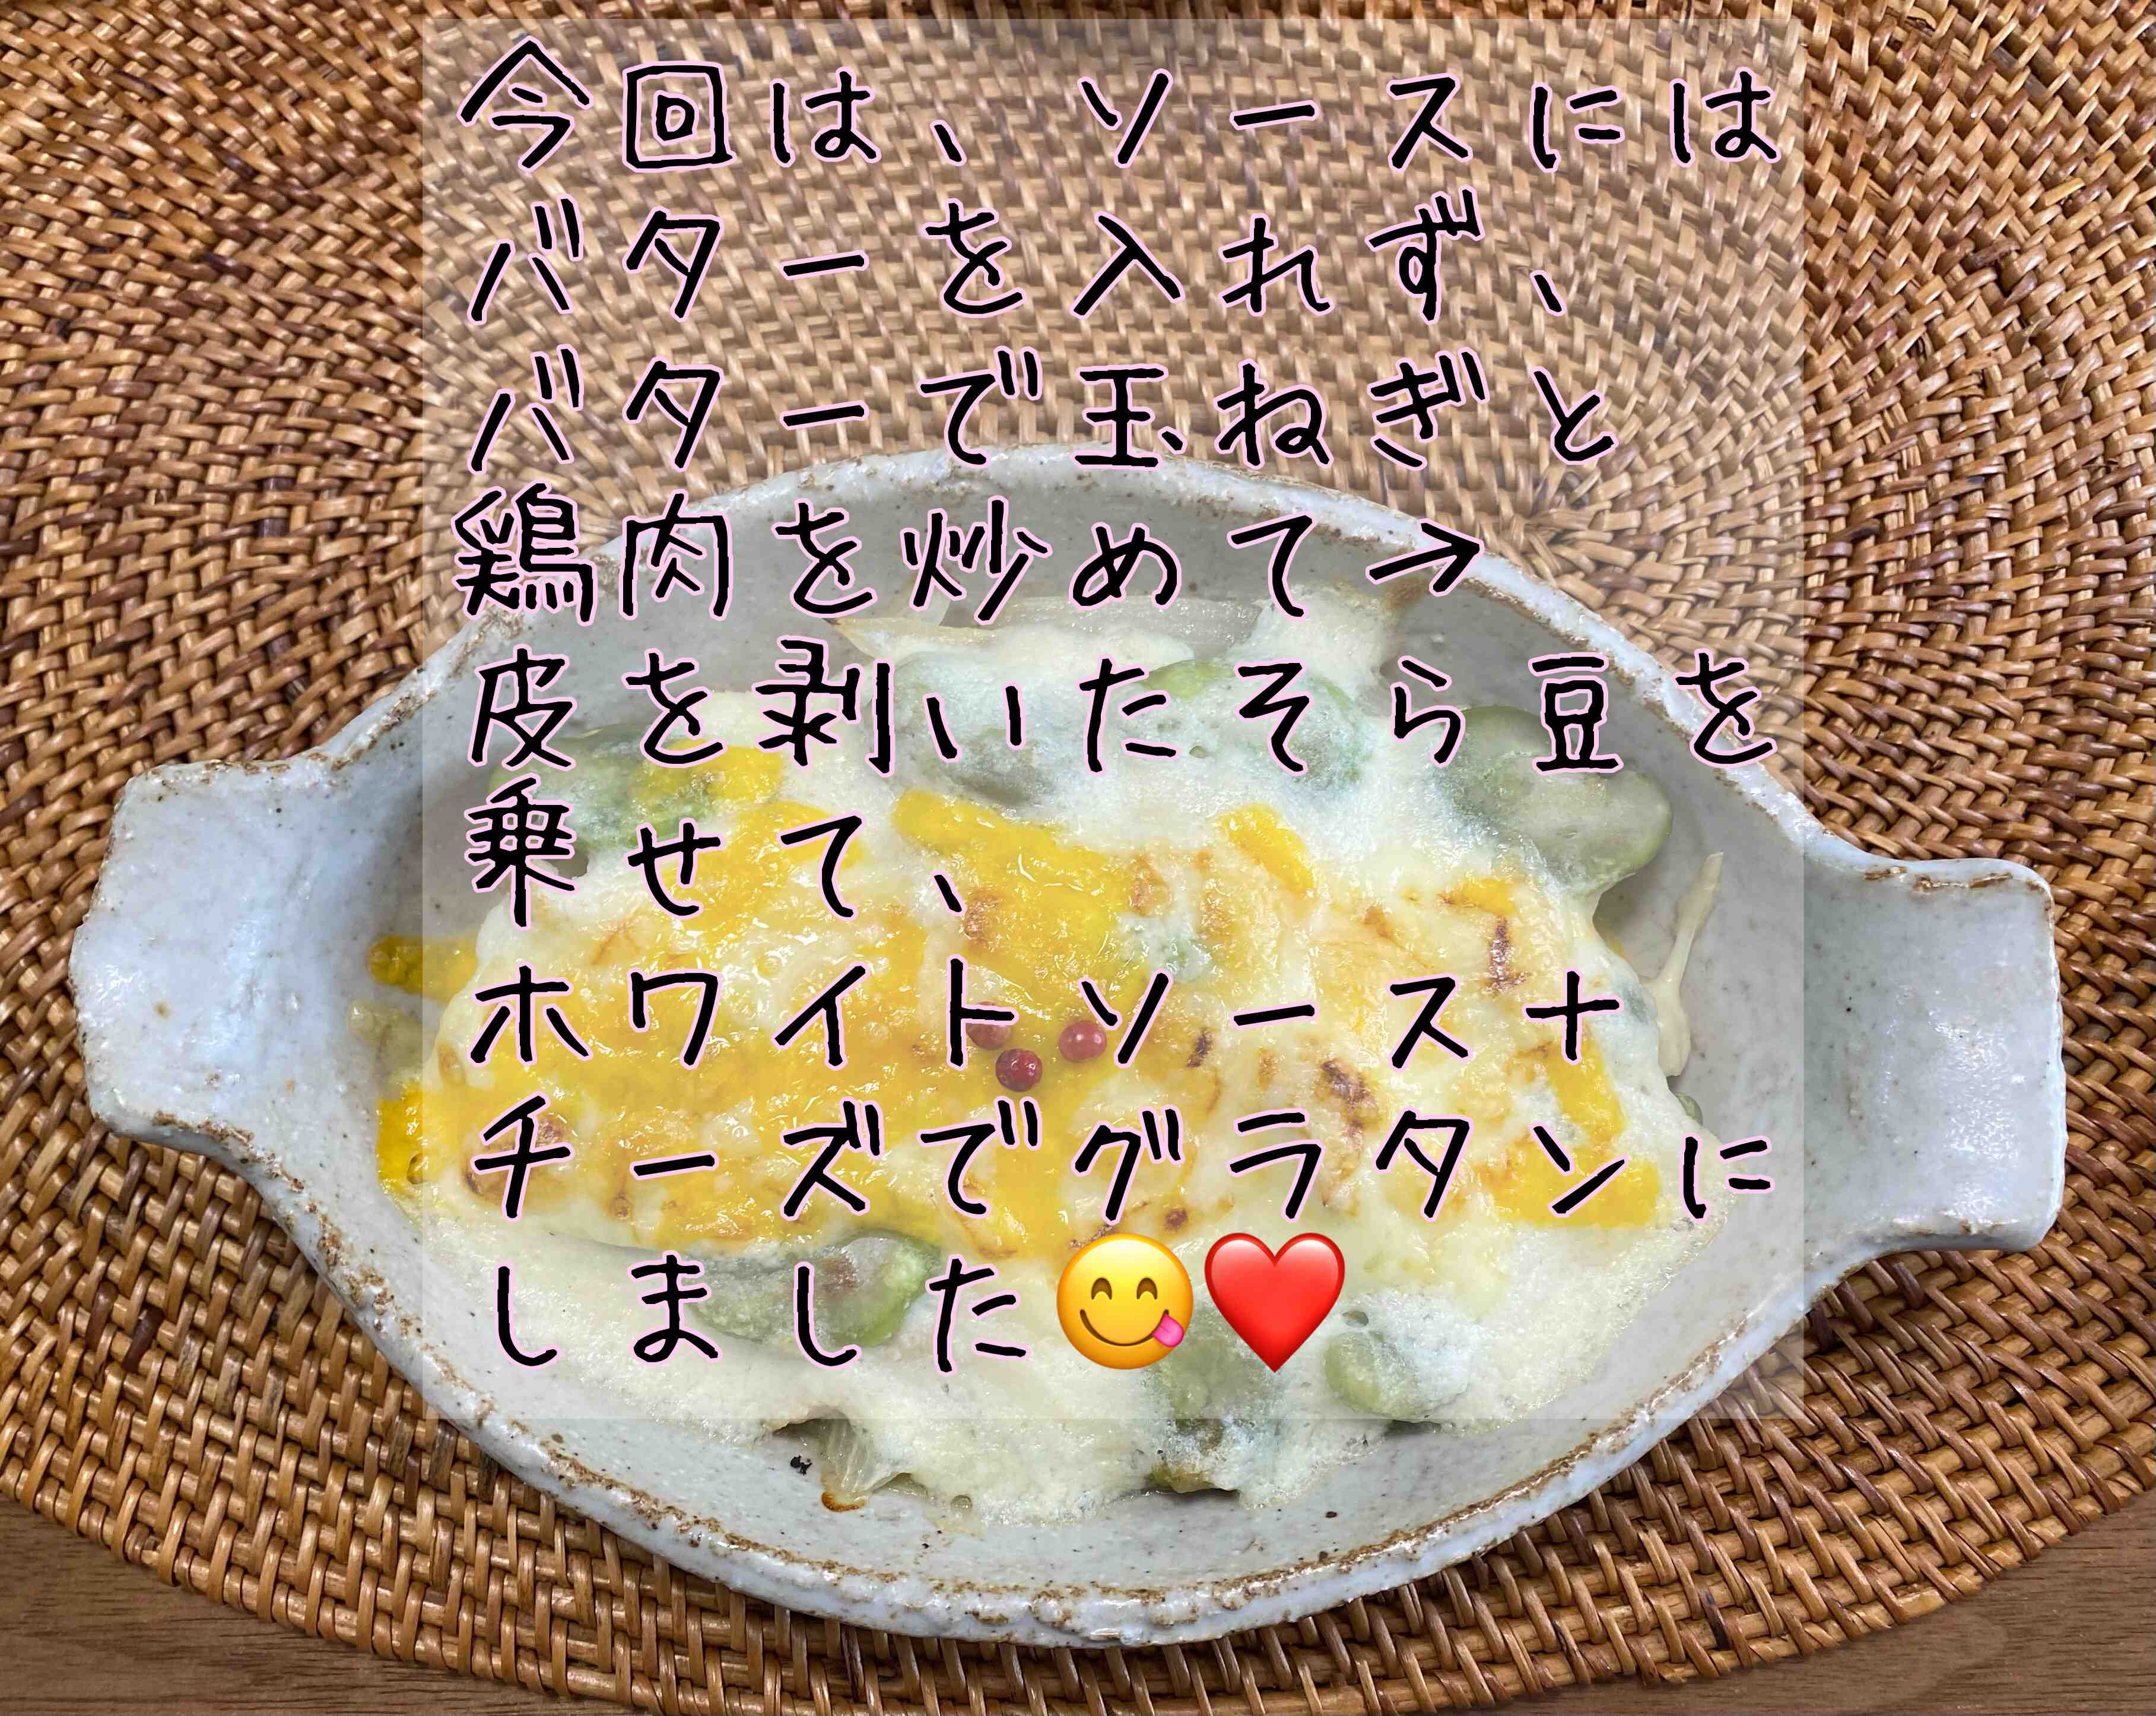 今回は、ソースには
バターを入れず、
バターで玉ねぎと
鶏肉を炒めて→
皮を剥いたそら豆を
乗せて、
ホワイトソース＋
チーズでグラタンに
しました😋❤️